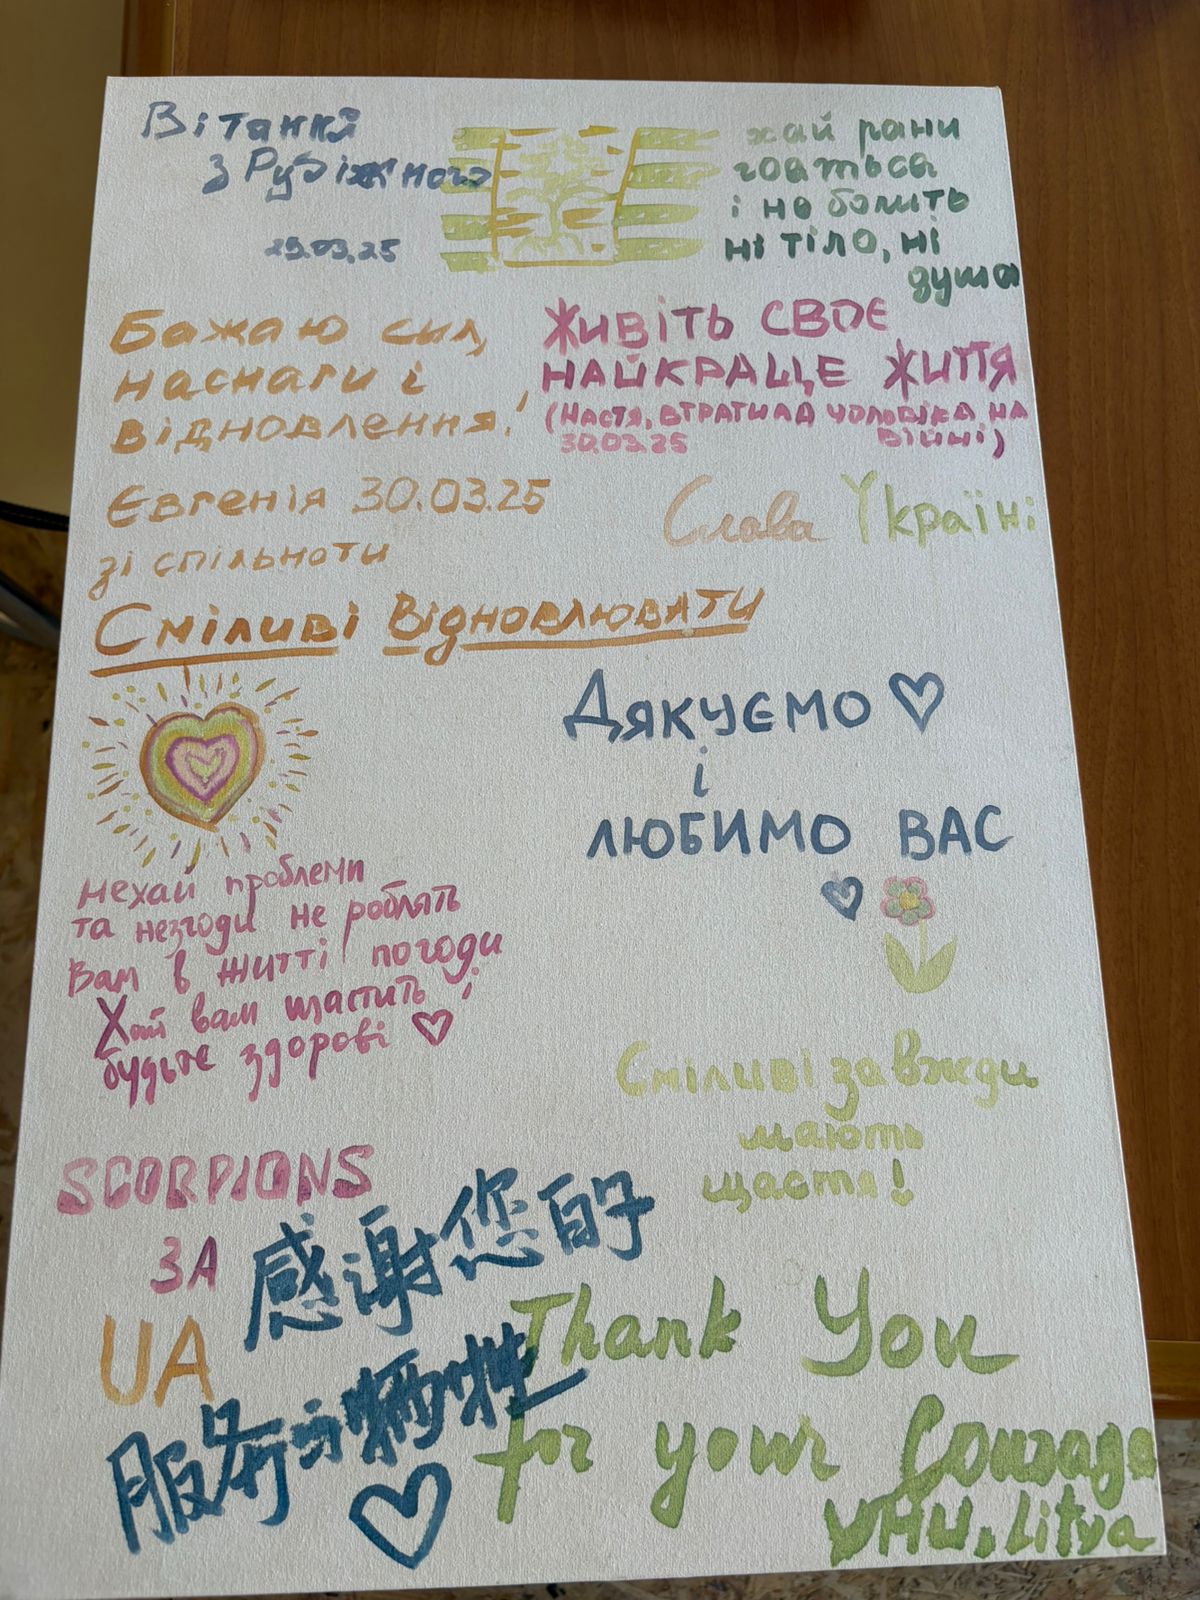 Вітання
з Рубіжного
29.03.25
хай рани
гояться
і не болить
ні тіло, ні
душа
Бажаю сил,
наснаги і
відновлення!
Євгенія 30.03.25
зі спільноти
Сміливі Відновлювати
ЖИВІТЬ СВОЄ
НАЙКРАЩЕ ЖИТТЯ
(НАСТЯ, ВТРАТИЛА ЧОЛОВІКА НА
30.03.25 ВІЙНІ)
Слава Україні
Дякуємо
і
ЛЮБИМО ВАС
нехай проблеми
та незгоди не роблять
Вам в житті погоди
Хай вам щастить!
будьте здорові
Сміливі завжди
мають
щастя!
SCORPIONS
ЗА
UA
感谢您的
服务与牺牲
Thank You
for your Courage
VHU, Litva